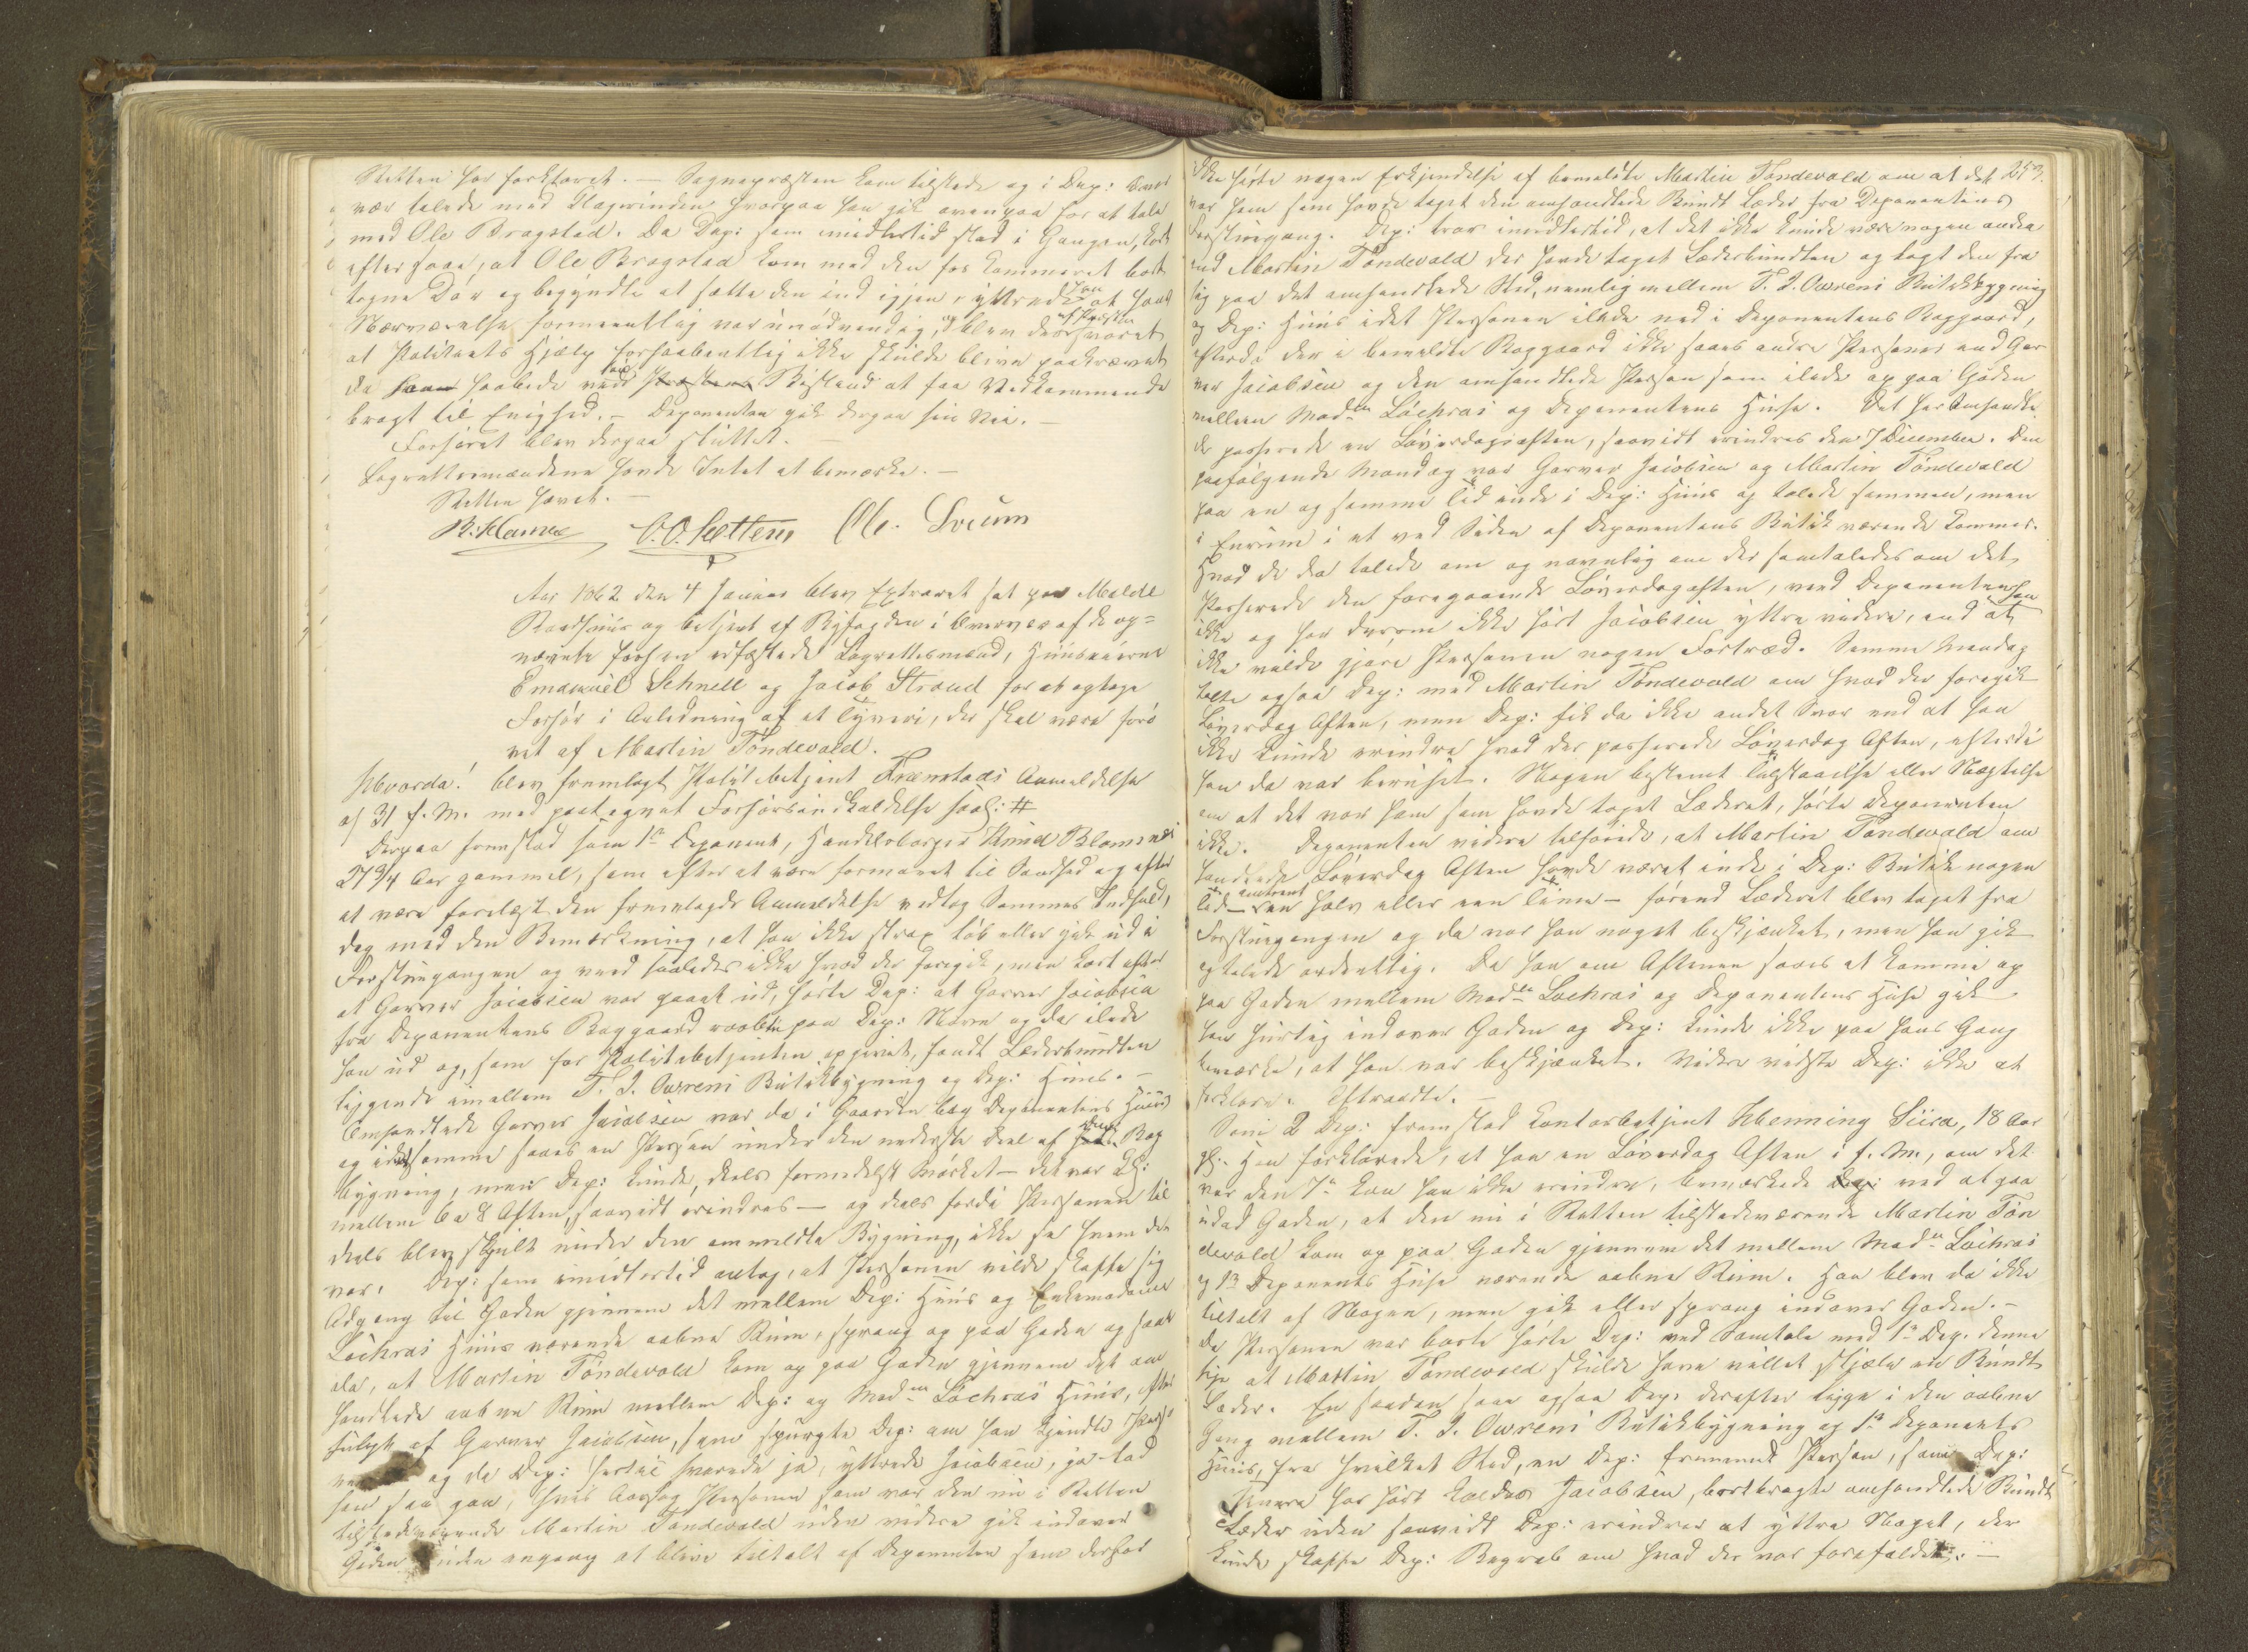 Retten har forklaret. — Sognepræsten kom tilstede og i Dep: Over
vær talede med Klagerinden hvorpaa han gik ovenpaa for at tale
med Ole Bragstad. Da Dep: som imidlertid stod i Gangen, kort
efter saae, at Ole Bragstad kom med den for Kammeret bort
tagne Dør og begyndte at sætte den ind igjen, yttrede han at hans
Nærværelse formeentlig var unødvendig, og blev der af Præsten svaret
at Politiets Hjælp forhaabentlig ikke skulde blive paakrævet
da han haabede ved sin Bistand at faa Vedkommende
bragt til Enighed. — Deponenten gik derpaa sin Vei. —
Forhøret blev derpaa sluttet. —
Lagrettemændene havde Intet at bemærke. —
Retten hævet. —
O. O. Setten Ole Sveum
Aar 1862 den 4 Januar blev Extraret sat paa Molde
Raadhuus og betjent af Byfogden i Overvær af de op=
nævnte forhen edfæstede Lagrettesmænd, Huuseierne
Emanuel Schnell og Jacob Strand for at optage
Forhør i Anledning af et Tyveri, der skal være forø
vet af Martin Tøndevold.
Hvorda! blev fremlagt Politibetjent Frenstads Anmeldelse
af 31 f. M. med paategnet Forhørsindkaldelse saal: #
Derpaa fremstod som 1ste Deponent, Handelsborger Knud
27 3/4 Aar gammel, som efter at være formanet til Sandhed og efter
at være forelæst den fremlagde Anmeldelse vedtog Sammes Indhold,
dog med den Bemærkning, at han ikke strax løb eller gik ud i
Forstuegangen og veed saaledes ikke hvad der foregik, men kort efter
at Garver Jacobsen var gaaet ud, hørte Dep: at Garver Jacobsen
fra Deponentens Baggaard raabte paa Dep: Navn og da ilede
han ud og, som for Politibetjenten opgivet, fandt Læderbundten
liggende imellem T. J. Owreni Butikbygning og Dep: Huus. —
Omhandlede Garver Jacobsen var da i Gaarden bag Deponentens Huus
og idetsamme saaes en Person under den nederste Deel af Dep: Bag
bygning, men Dep: kunde, deels formedelst Mørket — det var Kl:
mellem 6 a 8 Aften, saavidt erindres — og deels fordi Personen til
deels blev skjult under den anmeldte Bygning, ikke se hvem det
var. Dep: som imidlertid antog, at Personen vilde skaffe sig
Adgang til Gaden gjennem det mellem Dep: Huus og Enkemadame
Løchras Huus værende aabne Rum, sprang op paa Gaden og saae
der, at Martin Tøndevold kom op paa Gaden gjennem det om
handlede aabne Rum mellem Dep: og Madme Løchras Huus, efter
fulgt af Garver Jacobsen, som spurgte Dep: om han kjendte Perso
og da Dep: hertil svarede ja, yttrede Jacobsen, ja — lad
ham saa gaa, hvis Aarsag Personen som var den nu i Retten
tilstedeværende Martin Tøndevold uden videre gik indover
Gaden uden engang at blive tiltalt af Deponenten som derfor
253.
ikke hørte nogen Erkjendelse af bemeldte Martin Tøndevold om at det
var ham som havde taget den omhandlede Bundt Læder fra Deponentens
Forstuegang. Dep: troer imidlertid, at det ikke kunde være nogen anden
end Martin Tøndevold der havde taget Læderbundten og lagt den fra
sig paa det omhandlede Sted, nemlig mellem T. J. Owreni Butikbygning
og Dep: Huus idet Personen ilede ned i Deponentens Baggaard,
efterdi der i bemeldte Baggaard ikke saaes andre Personer end Gar
ver Jacobsen og den omhandlede Person som ilede op paa Gaden
mellem Madme Løchras og Deponentens Huse. Det her Omhandle
de passerede en Løverdagsaften, saavidt erindres den 7 December. Den
paafølgende Mandag var Garver Jacobsen og Martin Tøndevold
paa en og samme Tid inde i Dep: Huus og talede sammen, men
i Eenrum i et ved Siden af Deponentens Butik værende Kammer.
Hvad de da talede om og navnlig om der samtaledes om det
Passerede den foregaaende Løverdagaften, veed Deponenten
ikke og har derom ikke hørt Jacobsen yttre videre, end at han
ikke vilde gjøre Personen nogen Fortræd. Samme Mandag
talte ogsaa Dep: med Martin Tøndevold om hvad der foregik
Løverdag Aften, men Dep: fik da ikke andet Svar end at han
ikke kunde erindre hvad der passerede Løverdag Aften, efterdi
han da var beruset. Nogen bestemt Tilstaaelse eller Negtelse
om at det var ham som havde taget Læderet, hørte Deponenten
ikke. Deponenten videre tilføiede, at Martin Tøndevold om
handlede Løverdag Aften havde været inde i Dep: Butik nogen
Tid — omtrent een halv eller een Time — førend Læderet blev taget fra
Forstuegangen og da var han noget beskjænket, men han gik
og talede ordentlig. Da han om Aftenen saaes at komme op
paa Gaden mellem Madme Løchras og Deponentens Huse gik
han hurtig indover Gaden og Dep: kunde ikke paa hans Gang
bemærke, at han var beskjænket. Videre vidste Dep: ikke at
forklare. Aftraadte. —
Som 2 Dep: fremstod Contorbetjent Henning Siira, 18 Aar
gl. Han forklarede, at han en Løverdag Aften i f. M., om det
var den 7de kan han ikke erindre, bemærkede ved at gaa
udad Gaden, at den nu i Retten tilstedeværende Martin Tøn
devold kom op paa Gaden gjennem det mellem Madme Løchras
og 1ste Deponents Huse værende aabne Rum. Han blev da ikke
tiltalt af Nogen, men gik eller sprang indover Gaden. —
Da Personen var borte hørte Dep: ved Samtale med 1ste Dep. denne
sige at Martin Tøndevold skulde have villet stjæle en Bundt
Læder. En saadan saae ogsaa Dep: derefter ligge i den aabne
Gang mellem T. J. Owreni Butikbygning og 1ste Deponents
Huus, fra hvilket Sted, en Dep: fremmed Person, som Dep:
senere har hørt kaldes Jacobsen, bortbragte omhandlede Bundt
Læder uden saavidt Dep: erindrer at yttre Noget, der
kunde skaffe Dep: Begreb om hvad der var forefaldet. —